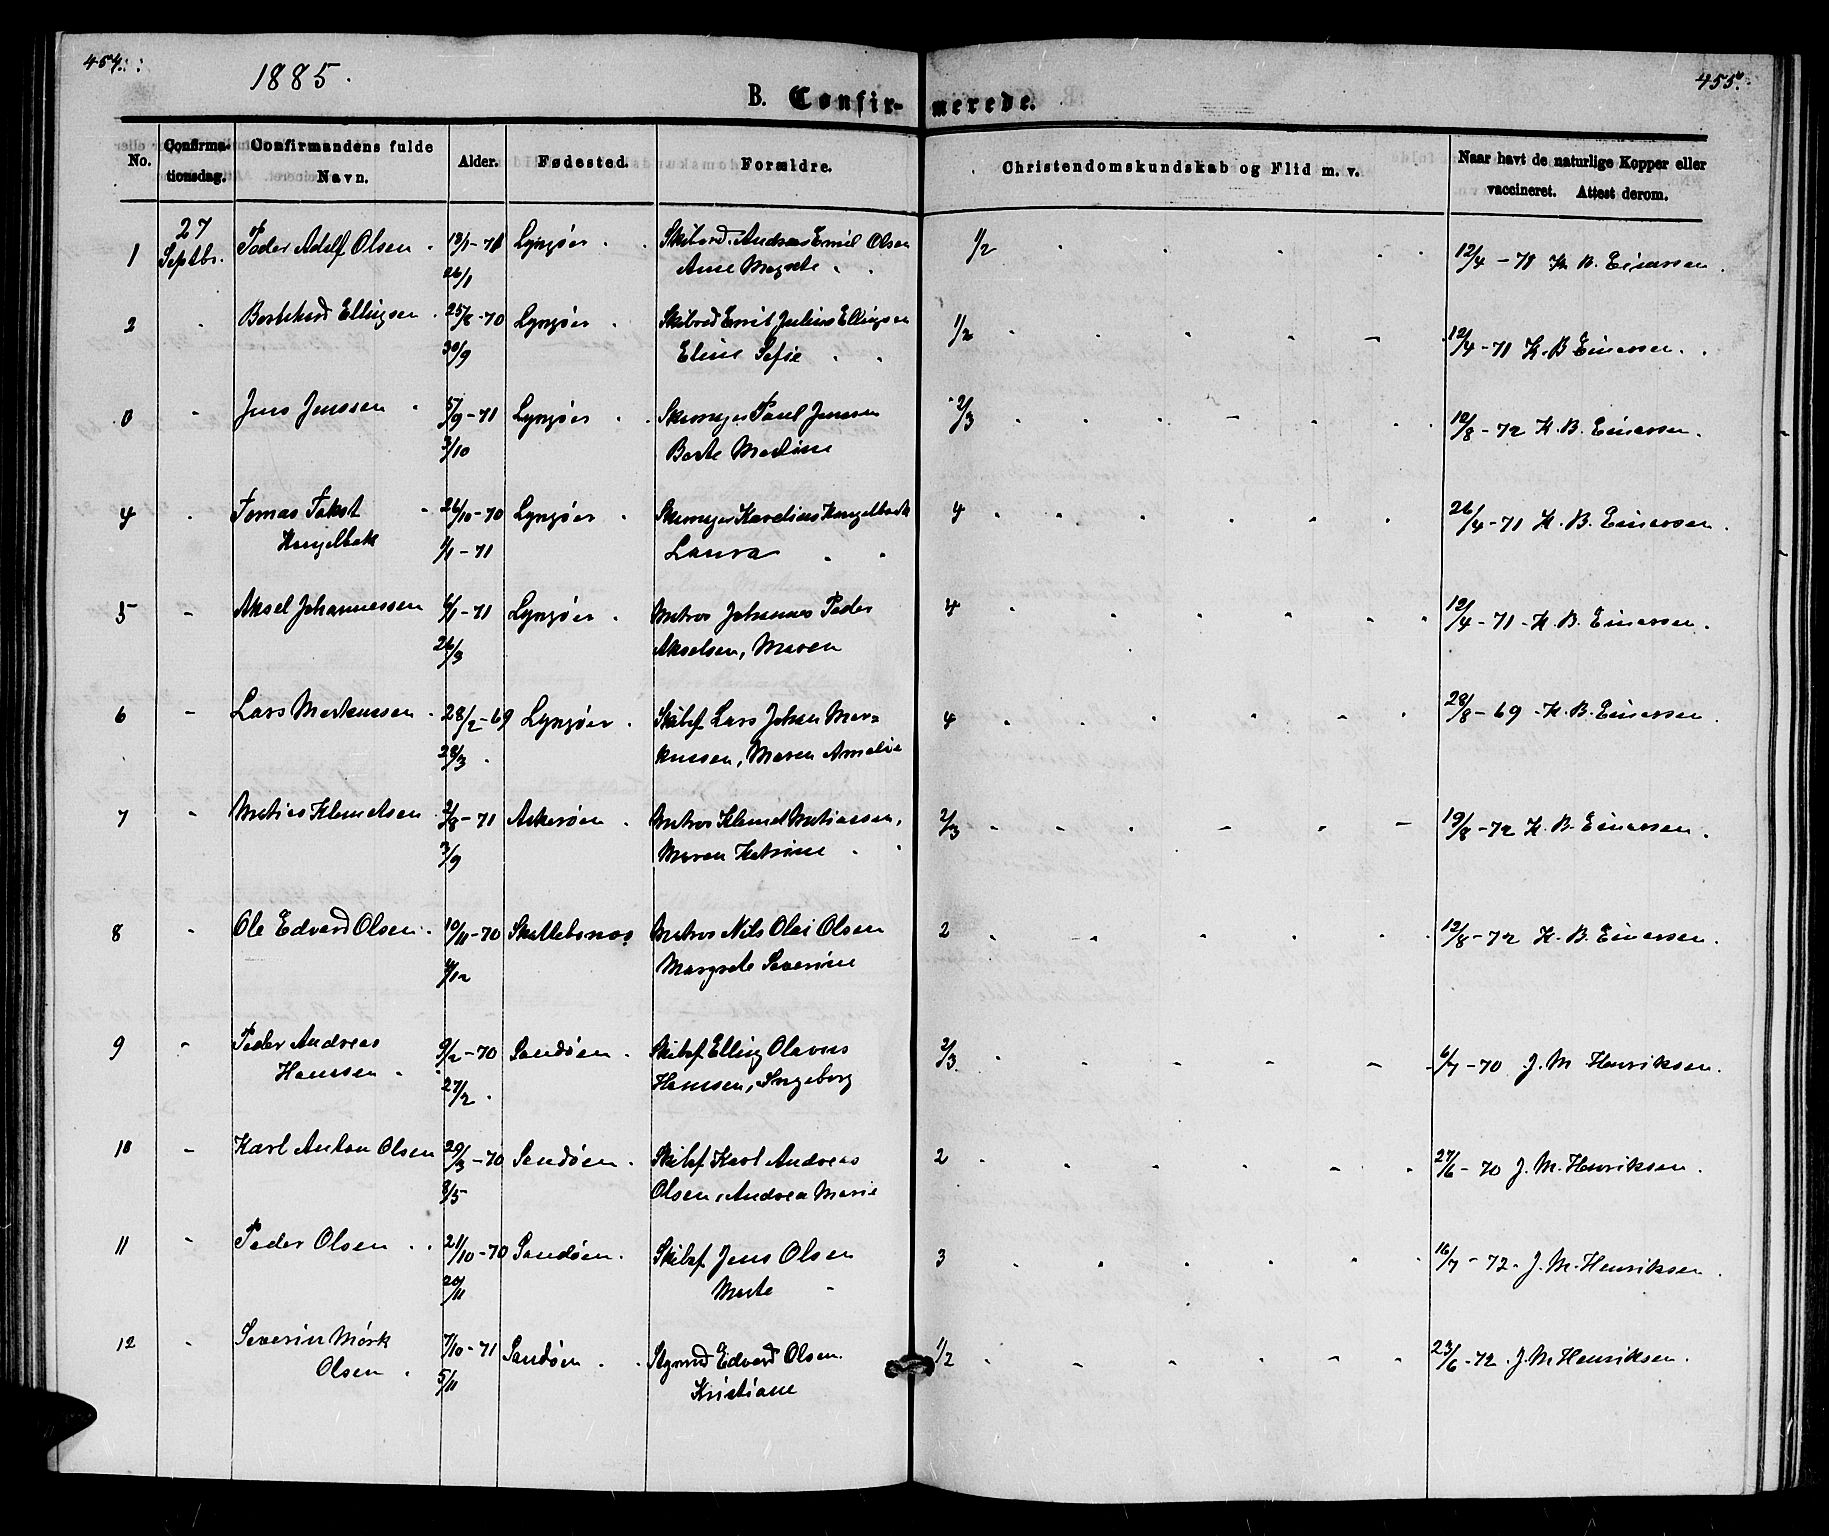 454.
1885.
B. Confir-
merede.
455.
No.
Confirma-
tionsdag.
Confirmandens fulde
Navn.
Alder.
Fødested.
Forældre.
Christendomskundskab og Flid m. v.
Naar havt de naturlige Kopper eller
vaccineret. Attest derom.
1 27 Septbr. Peder Adolf Olsen Lyngøer Andreas Emil Olsen 1/2 12/4 - 71 K. B. Einersen.
26/1 Ane Magrete
2 Ellingsen 25/8 - 70 Lyngøer Julius Ellingsen 1/2 12/4 - 71 K. B. Einersen.
30/9 Eline Sofie
Jens Jenssen 5/9 - 71 Lyngøer Poul Jenssen 2/3 12/8 - 72 K. B. Einersen.
3/10
4 Tomas 26/10 - 70 Lyngøer 4 26/4 - 71 K. B. Einersen.
1/1 - 71 Laura
5 Aksel Johannessen 6/1 - 71 Lyngøer Matros Johannes Peder 4 12/4 - 71 - K. B. Einersen.
26/3 Akselsen, Maren
6 Lars Markussen 28/2 - 69 Lyngøer Skibsf Lars Johan Mar=
28/3 kussen, Maren Amalie 4 28/8 - 69 - K. B. Einersen
7 Matias Klemetsen 2/8 - 71 Askerøen Matros Klemet Matiassen, 2/3 19/8 - 72 K. B. Einersen.
3/9 Maren Katrine
8 Ole Edvard Olsen 10/11 - 70 Matros Nils Olai Olsen 2 12/8 - 72 K. B. Einersen.
4/12 Margrete Severine
9 Peder Andreas 9/2 - 70 Sandøen Skibsf Elling Olavus 2/3 6/7 - 70 J. M Henriksen.
Hanssen 27/2 Hanssen, Ingeborg
10 Karl Anton Olsen 20/3 - 70 Sandøen Skibsf Karl Andreas 2 27/6 - 70 J. M. Henriksen.
8/5 Olsen, Andrea Marie
11 Peder Olsen 21/10 - 70 Sandøen Skibsf Jens Olsen 3 16/7 - 72. J. M. Henriksen
20/11 Marte
12 Severin Mørk 7/10 - 71 Sandøen Edvard Olsen 1/2 23/6 - 72. J. M Henriksen.
Olsen 5/11 Kristiane